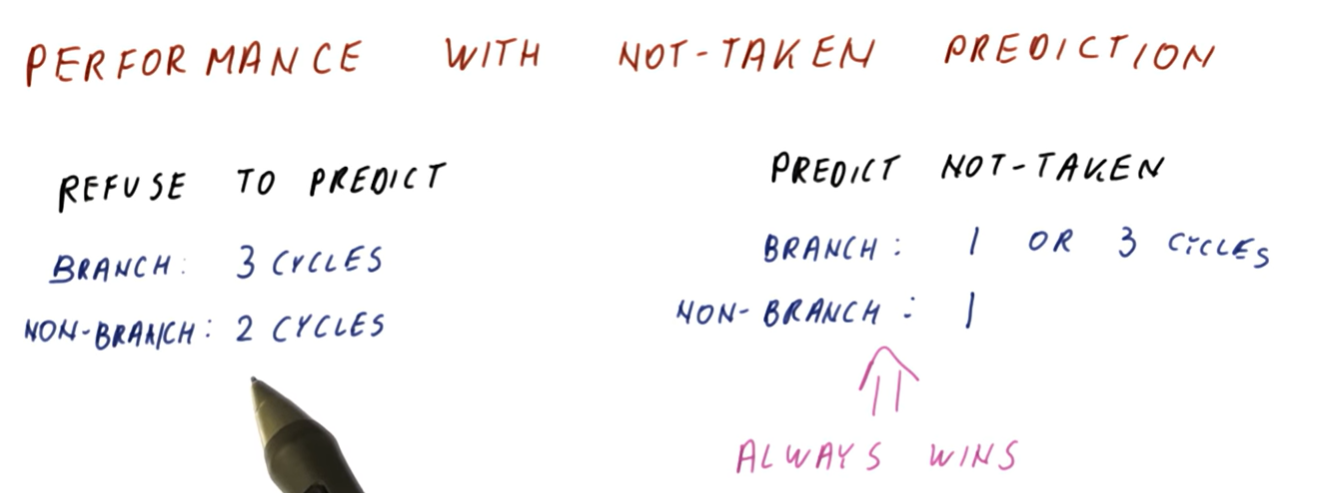 PERFORMANCE WITH NOT-TAKEN PREDICTION
REFUSE TO PREDICT
BRANCH: 3 CYCLES
NON-BRANCH: 2 CYCLES
PREDICT NOT-TAKEN
BRANCH: 1 OR 3 CYCLES
NON-BRANCH: 1
ALWAYS WINS